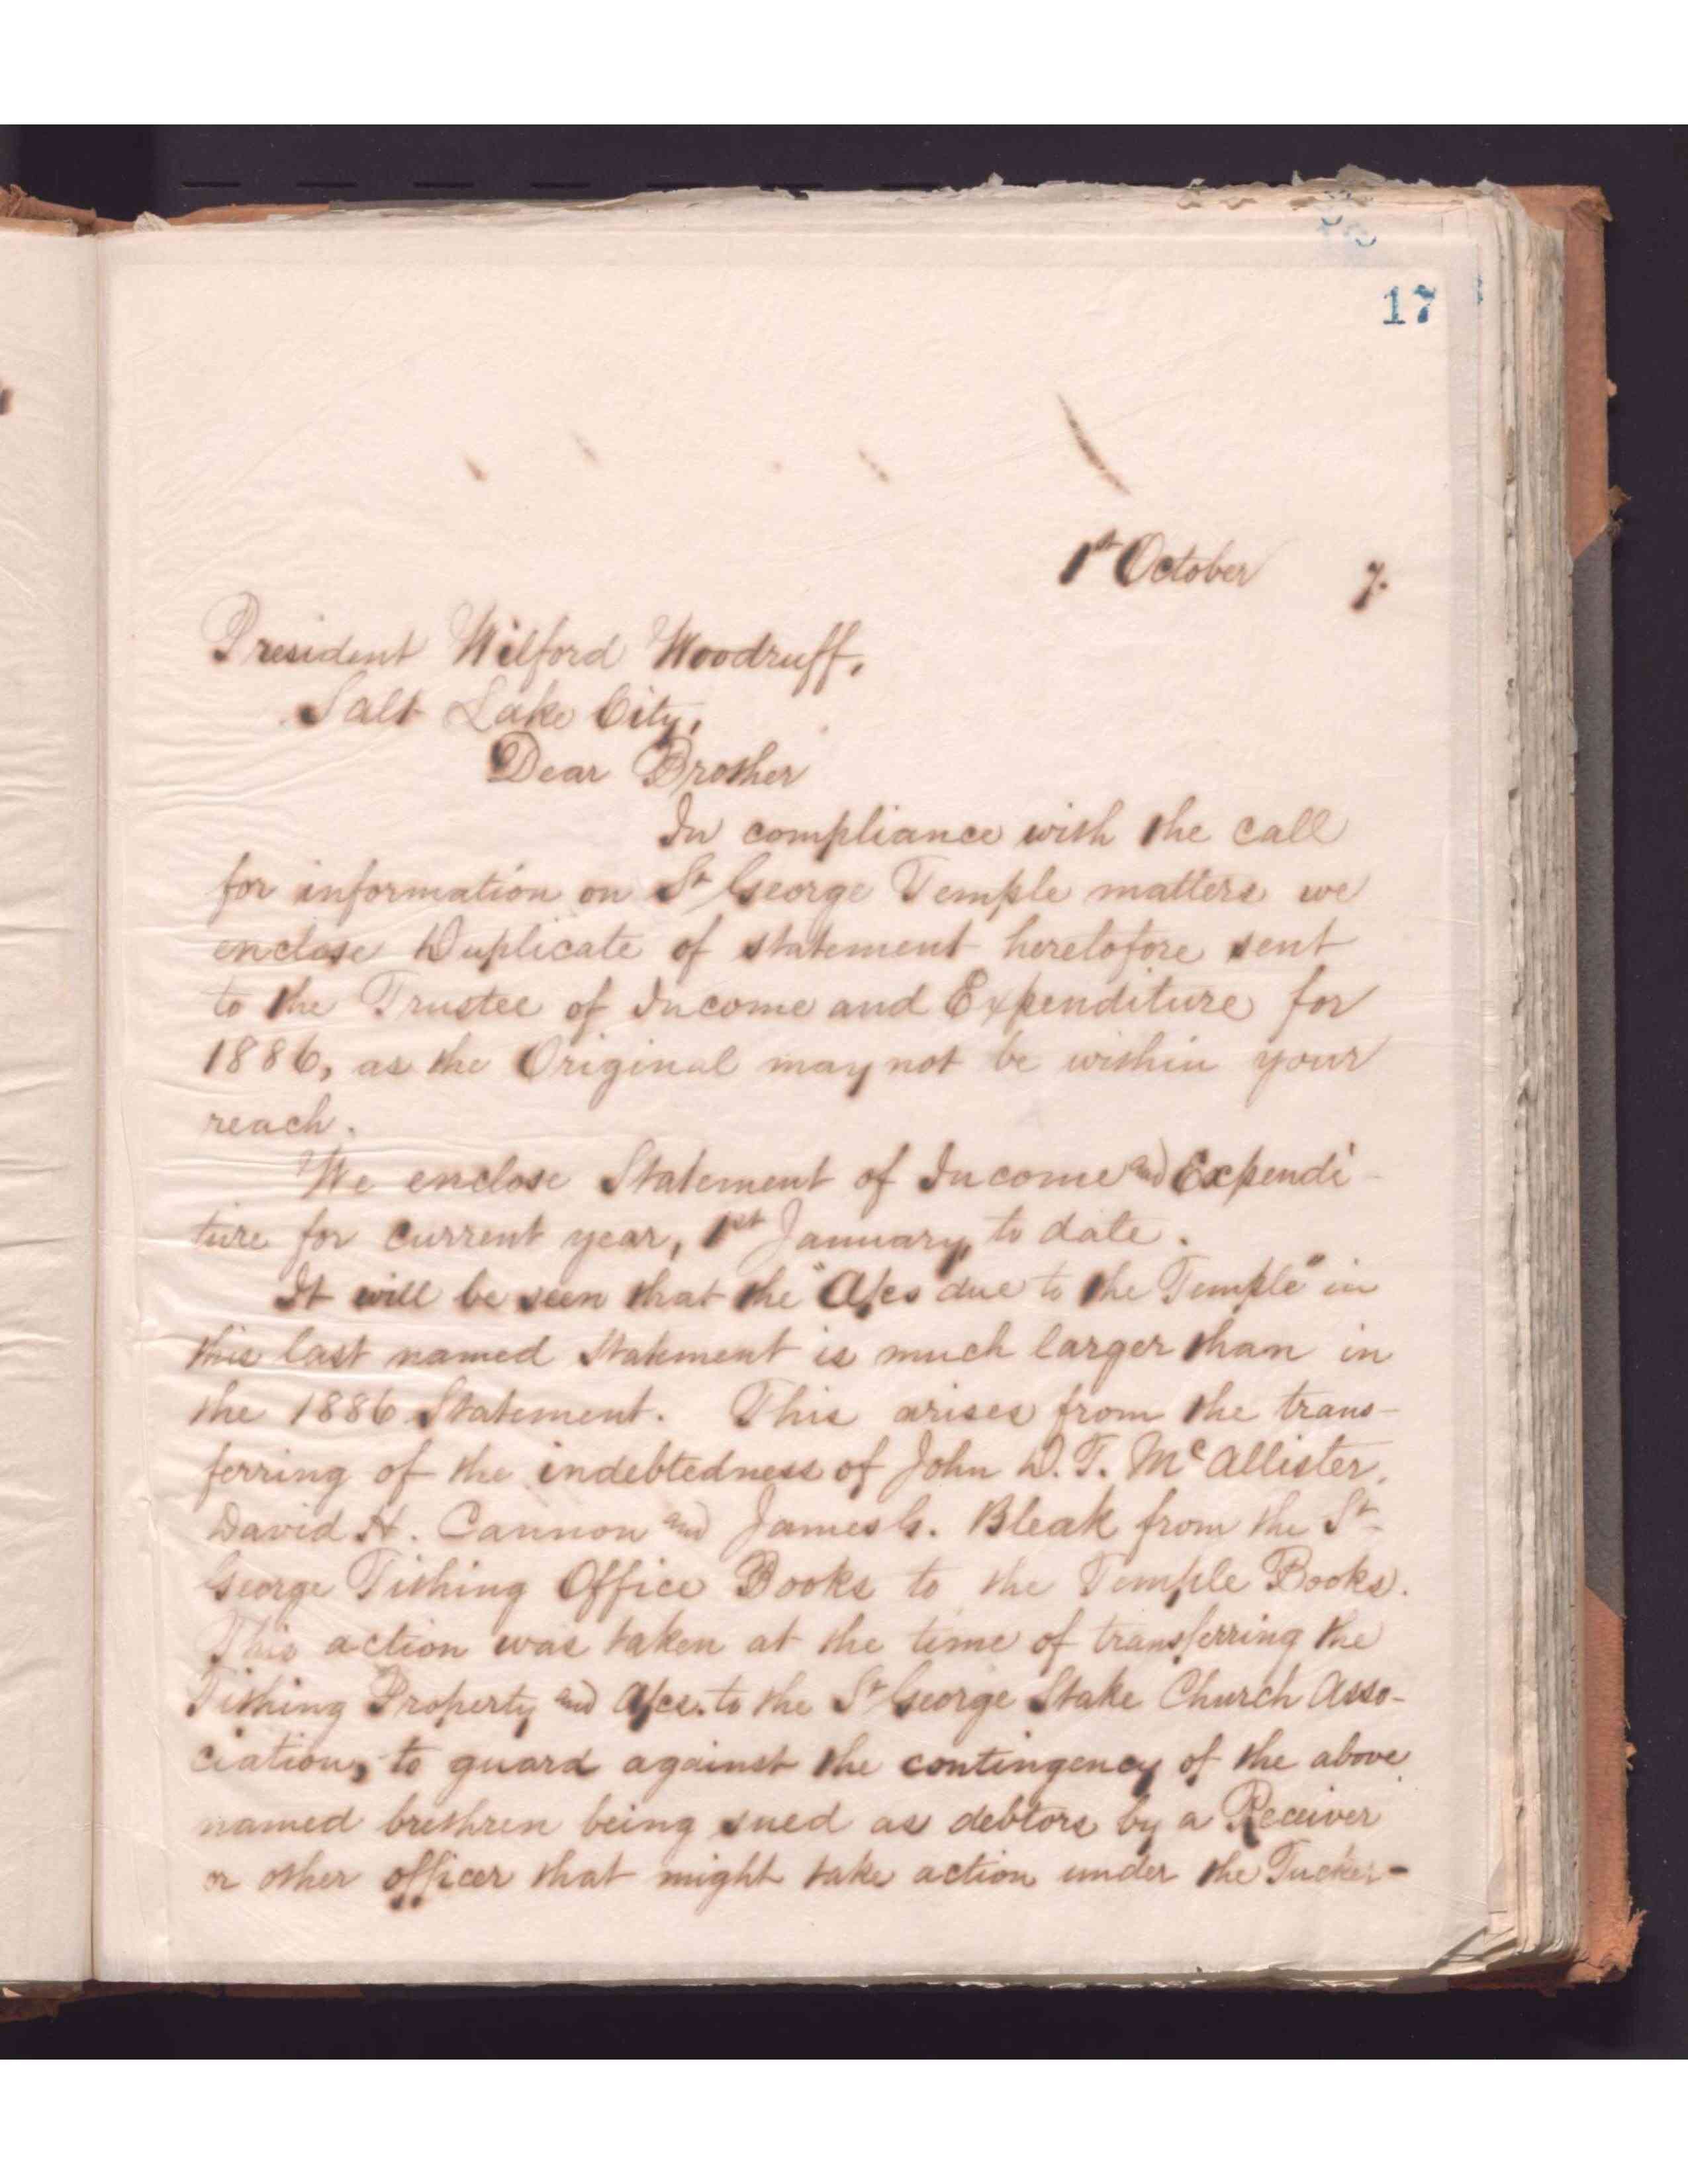 17
1st October 7.
President Wilford Woodruff,
Salt Lake City,
Dear Brother
In compliance with the call
for information on St George Temple matters we
enclose Duplicate of statement heretofore sent
to the Trustee of Income and Expenditure for
1886, as the Original may not be within your
reach.
We enclose Statement of Income and Expendi-
ture for current year, 1st January, to date.
It will be seen that the "A/cs due to the Temple" in
this last named Statement is much larger than in
the 1886 Statement. This arises from the trans-
ferring of the indebtedness of John D. T. McAllister,
David H. Cannon and James G. Bleak from the St
George Tithing Office Books to the Temple Books.
This action was taken at the time of transferring the
Tithing Property and A/cs. to the St George Stake Church Asso-
ciation, to guard against the contingency of the above
named brethren being sued as debtors by a Receiver
or other officer that might take action under the Tucker-